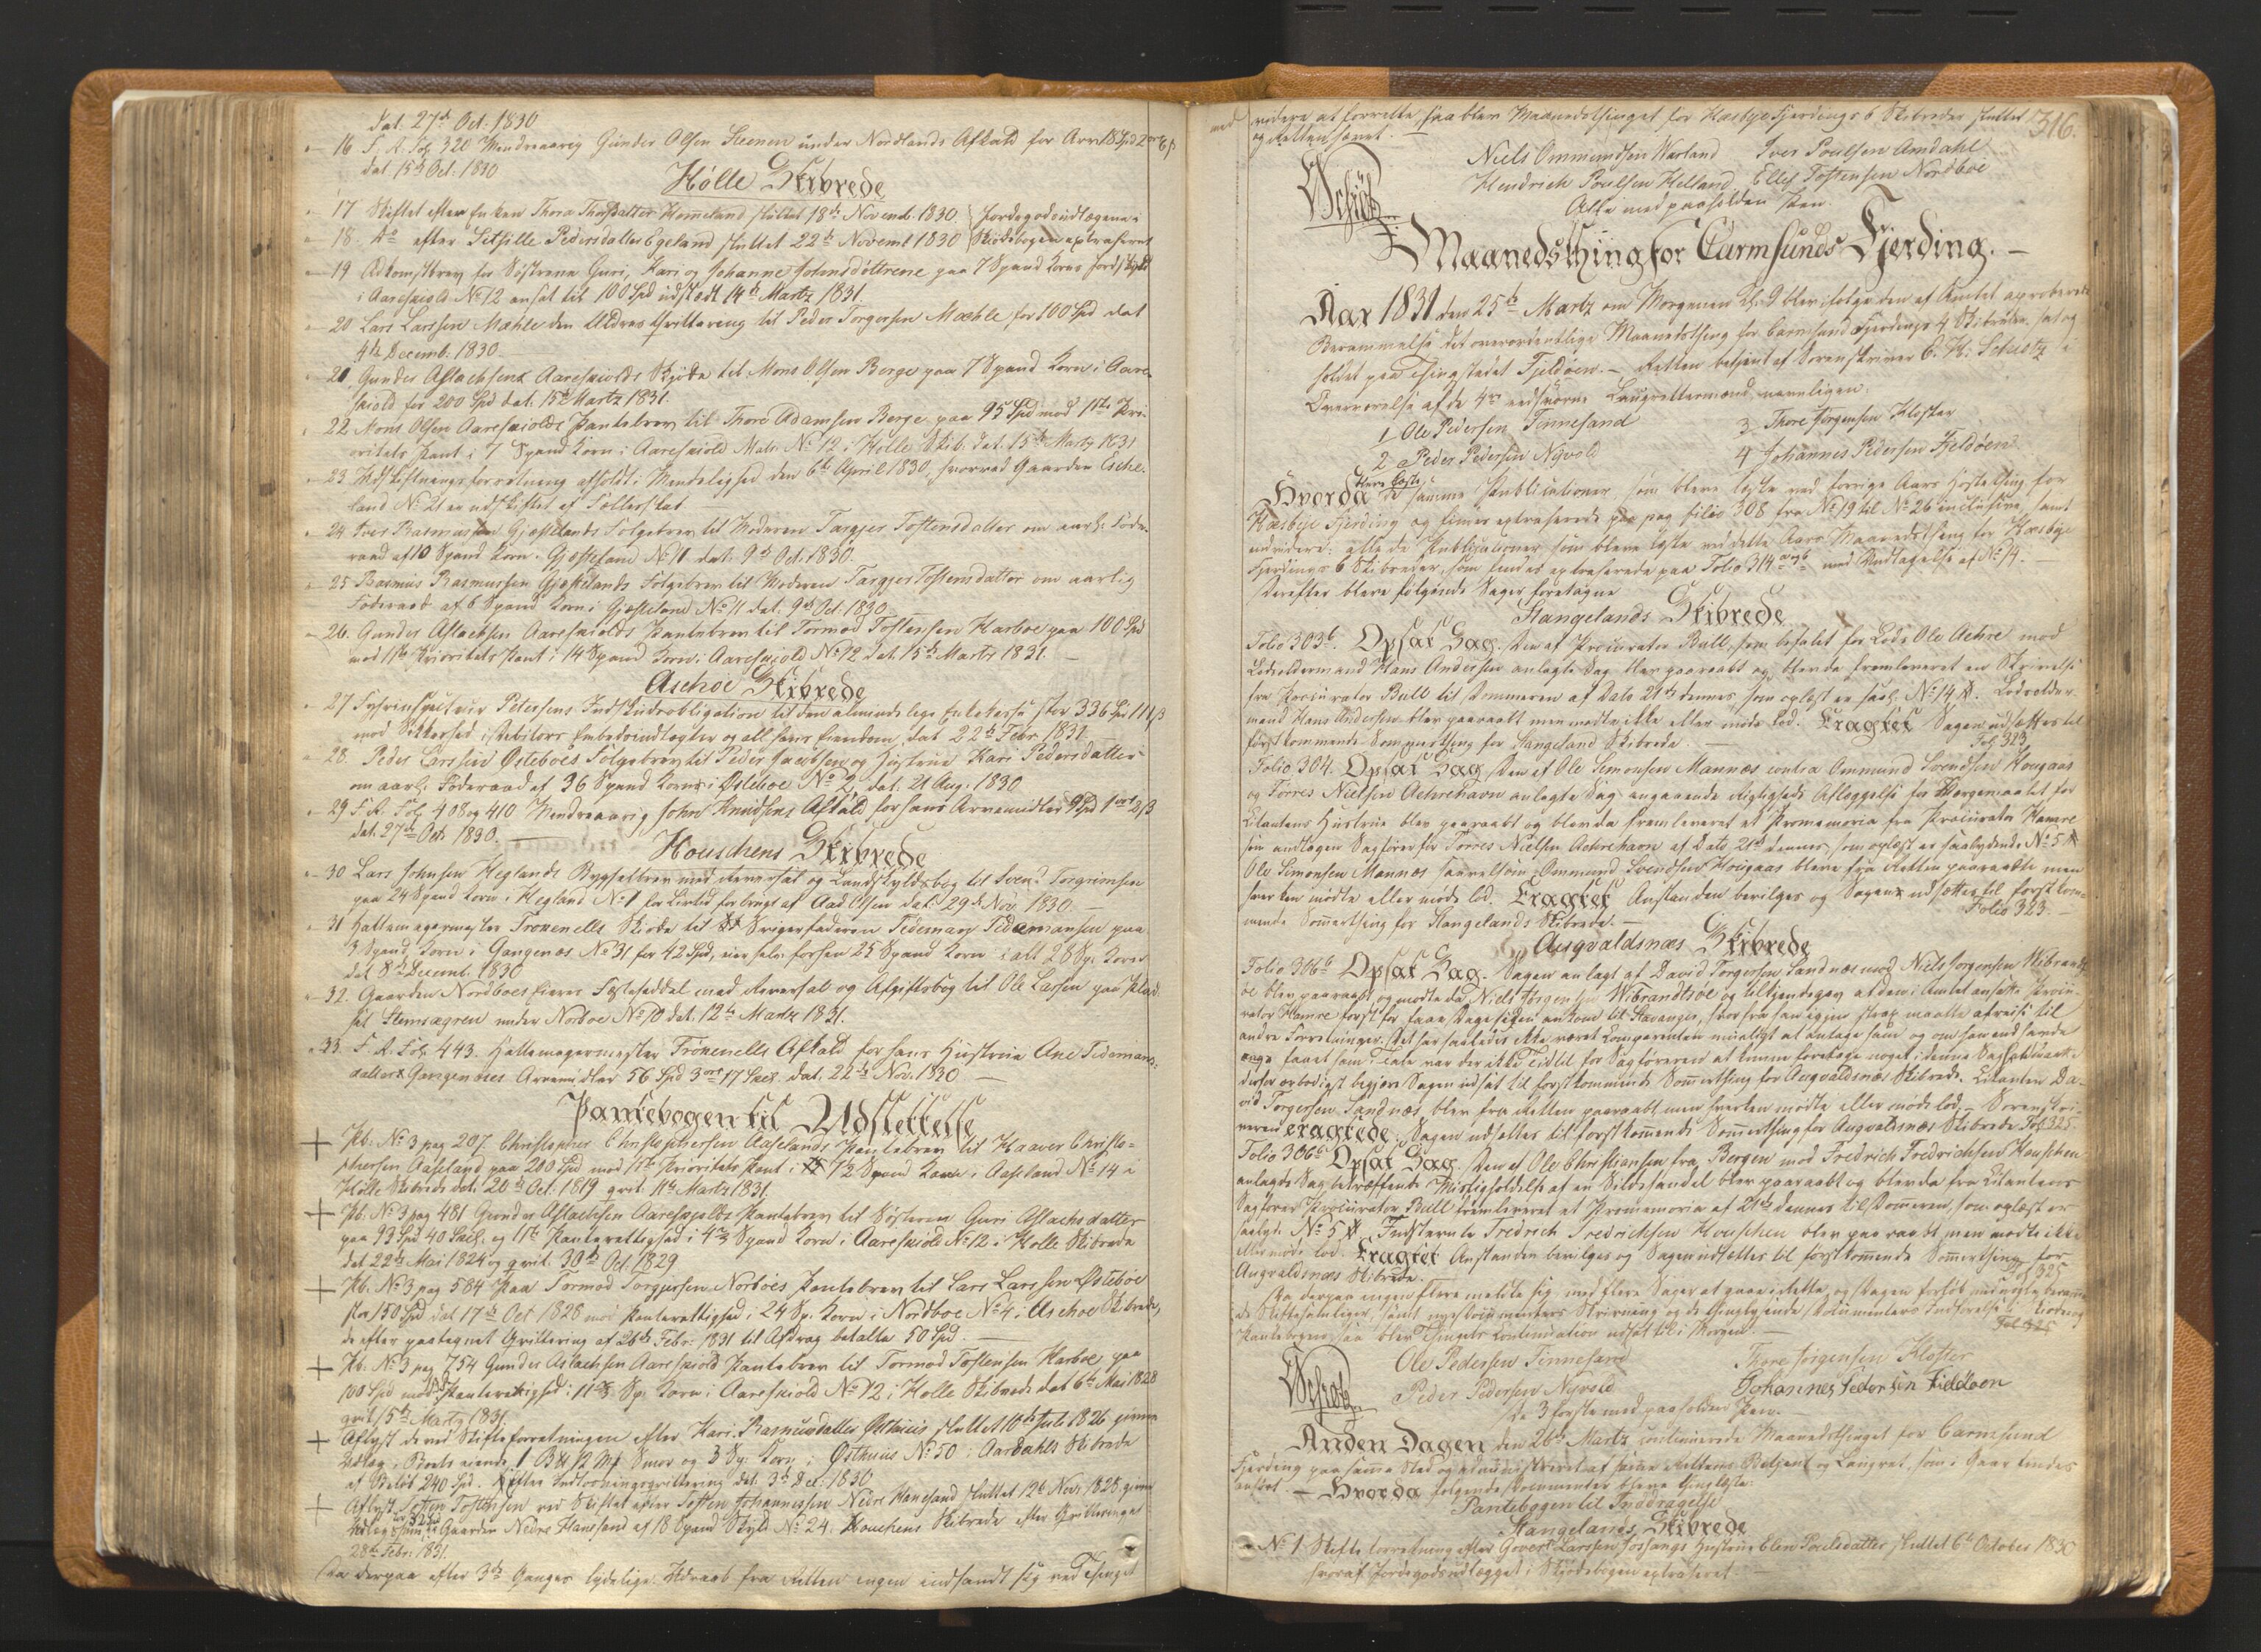 dat. 27de Oct. 1830
16 F. A. Fol. 320 Mindreaarig Gunder Olsen Steenen under Nordlands Afkald for Arv 18 Spd 2
dat 15de Oct. 1830
Hölle Skibrede
17 Skiftet efter Enken Thora Thorsdatter Homeland sluttet 18de Novemb. 1830. Jordegodsudlægene i
18. do efter Sitsille Pedersdatter Egeland sluttet 22de Novemb 1830 Skiödebogen extraherede
19 Adkomstbrev for Söstrene Guri, Kari og Johanne Johnsdöttrene paa 7 Spand Korns Jordskyld
i Aareskiold No 12 ansat til 100 Spd udstædt 14de Martz 1831.
20 Lars Larssen Mæhle den Ældres Qvittering til Peder Torgersen Mæhle for 100 Spd dat
4de Decemb: 1830
21. Gunder Aslachsens Aareskiolds Skjöde til Mons Olsen Berge paa 7 Spand Korn i Aare-
skiold for 200 Spd dat. 15de Martz 1831.
22 Mons Olsen Aareskiolds Pantebrev til Thore Adamsen Berge paa 95 Spd mod 1ste Pri-
oritets Pant i 7 Spand Korn i Aareskiold Matr. No 12 i Hölle Skib. dat. 15de Martz 1831
23 Udskiftningsforretning afholdt i Mindelighed den 6te April 1830, hvorved Gaarden Eske-
land No 21 er udskiftet af Fællerskab
24 Iver Rasmussen Gjesteland Folgebrev til Moderen Targjer Tostensdatter om aarl: Föde-
raad af 10 Spand Korn i Gjesteland No 11 dat. 9de Oct. 1830.
25 Rasmus Rasmussen Gjestelands Folgebrev til Moderen Targjer Tostensdatter om aarlig
Föderaad af 6 Spand Korn i Gjesteland No 11 dat. 9de Oct. 1830
26. Gunder Aslachsen Aareskiolds Pantebrev til Tormod Tostensen Harboe paa 100 Spd
mod 1ste Prioritets Pant i 14 Spand Korn i Aareskiold No 12 dat. 15de Martz 1831.
Aschoe Skibrede
27 Petersens Indskudsobligation til den almindelige Enkekasse stor 336 Spd
mod Sikkerhed i Debitors Embedsindtægter og alt hans Eiendom, dat 22de Febr. 1831
28. Peder Österboes Folgebrev til Peder Jacobsen og Hustrue Kari Pedersdatter
om aarl: Föderaad af 36 Spand Korn i Östeboe No 2, dat. 21 Aug. 1830
29 F. A. Fol. 408 og 410 Mindreaarig John Knudsens Afkald for hans Arvemidler 9 Spd 1 ort 2 ß
dat. 27de Oct. 1830.
Houschens Skibrede
30 Lars Johnsen Heglands Bygselbrev med Reversal og Landskyldsbog til Svend Torgrimsen
paa 24 Spand Korn i Hegland No 1 for Livstid forbrugt af Aad Olsen dat. 29de Nov. 1830.
31 Hattemagermester Tronenells Skiöde til Svigerfaderen Tideman Tidemansen paa
3 Spand Korn i Gangenæs No 31 for 42 Spd, men forhen 25 Spand Korn i alt 28 Sp. Korn
dat 8de Decemb. 1830
32. Gaarden Nordboes Eieres Fæsteseddel med Reversal og Afgiftsbog til Ole Larsen paa Plad-
set Stemsægren under Norboe No 10 dat. 12te Martz 1831.
33 F. A. Fol. 443. Hattemagermester Trönenells Afkald for hans Hustrue Ane Tidemans-
datter Gangenæs Arvemidler 56 Spd 3 ort 17 Skil. dat. 22de Nov. 1830
Pantebogen til Udslettelse
Pb. No 3 pag 207. Christopher Christophersen Aaselands Pantebrev til Haaver Christo-
phersen Aaseland paa 200 Spd mod 1ste Prioritets Pant i 12 Spand Korn i Aaseland No 14 i
Hölle Skibrede dat. 20de Oct. 1819 qvit. 11te Martz 1831.
Pb. No 3 pag 481 Gunder Aslachsen Aareskjolds Pantebrev til Söstren Guri Aslachsdatter
paa 99 Spd 40 Skil. og 1ste Panterettighed i Spand Korn i Aareskiold No 12 i Hölle Skibrede
dat 22de Mai 1824 og qvit. 30te Oct. 1829.
Pb. No 3 pag 584 Paa Tormod Torgjersen Norboes Pantebrev til Lars Larssen Östeboe
stor 150 Spd dat 17de Oct 1828 mod Panterettighed i 24 Sp. Korn i Nordboe No 4 i Aschoe Skibrede,
er efter paategnet Qvittering af 26de Febr. 1831 til Afdrag betalte 50 Spd.
Pb. No 3 pag 754 Gunder Aslachsen Aareskiold Pantebrev til Tormod Tostensen Harboe paa
100 Spd mod Panterettighed i Sp. Korn i Aareskiold No 12 i Hölle Skibrede dat 6te Mai 1828
qvit. 15de Martz 1831.
Aflyst de ved Skifteforretningen efter Kari Rasmusdatter Östhuus sluttet 10de Juli 1826 givne
Udlæg i Boets eiende 1 12 Mk Smör og 3 Sp. Korn i Östhuus No 50 i Aardahls Skibrede
af Beløb 240 Spd. efter Indlösningsqvittering dat. 3de Dec. 1830
Aflyst Tosten Tostensen ved Skiftet efter Tosten Johannessen Nedre Hanesand sluttet 12te Nov. 1828 givne
Udlæg i Gaarden Nedre Hanesand af 18 Spand Skyld No 24 i Houschens Skibrede efter Qvitteringen
28de Febr. 1831.
Da derpaa efter 3de Ganges lydelige Udraab fra Retten ingen indfandt sig ved Thinget
316.
med videre at forrette, saa blev Maanedsthinget for Hæsbye Fjerdings 6 Skibreder sluttet
og Retten hævet.
Niels Ommundsen Warland Iver Poulsen Amdahl
Hendrich Poulsen Helland, Ellef Tostensen Nordboe
Alle med paaholden Pen.
Schiötz
Maanedsthing for Carmsunds Fjerding.
Aar 1831 den 25de Martz om Morgenen Kl. 9 blev ifølge den af Amtet aproberede
Berammelse det overordentlige Maanedsthing for Carmsund Fjerdings 4 Skibreder sat og
holdet paa Thingstedet Fjeldöen. Retten betjent af Sorenskriver Schiötz i
Overværelse af de 4re edsvorne Laugrettesmænd, navnligen:
1 Ole Pedersen Finnesand 3 Thore Jørgensen Kloster
2 Peder Pedersen Nyvold 4 Johannes Pedersen Fjeldöen
Hvorda bleve læste de samme Publicationer, som bleve læste ved forrige Aars Høstething for
Hæsbye Fjerding og findes extraherede paa pag folio 308 fra No 19 til No 26 inclusive, samt
endvidere: alle de Publicationer som bleve læste ved dette Aars Maanedsthing for Hæsbye
Fjerdings 6 Skibreder, som findes extraherede paa Folio 314 a og b med Undtagelse af No 14.
Derefter bleve følgende Sager foretagne
Stangelands Skibrede
Folio 303b. Opsat Sag. Den af Procurator Bull, som befalet for Lods Ole Aehre mod
Lodsoldermand Hans Andersen anlagte Sag blev paaraabt og blev da fremleveret en Skrivelse
fra Procurator Bull til Dommeren af Dato 21de dennes, som oplæst er saal. No 14. Lodsolder-
mand Hans Andersen blev paaraabt men mødte ikke eller møde lod. Eragtet Sagen udsættes til
førstkommende Sommerthing for Stangeland Skibrede.
Fol. 323
Folio 304. Opsat Sag Den af Ole Simonsen Mannæs contra Ommund Svendsen Hougaas
og Torres Nielsen Aehrehavn anlagte Sag angaaende Rigtigheds Aflæggelse for Værgemaalet for
Citantens Hustrue blev paaraabt og blev da fremleveret et Promemoria fra Procurator Hamre
som antagen Sagfører for Torres Nielsen Aehrehavn af Dato 21de dennes, som oplæst er saalydende No 5
Ole Simonsen Mannæs saavelsom Ommund Svendsen Hougaas bleve fra Retten paaraabte men
hverken mødte eller møde lod. Eragtet Anstanden bevilges og Sagen udsættes til førstkom-
mende Sommerthing for Stangelands Skibrede.
Folio 323.
Augvaldsnæs Skibrede
Folio 306a Opsat Sag. Sagen anlagt af David Torgersen Sandnæs mod Niels Jorgensen Wibrandts-
øe blev paaraabt og mødte da Niels Jørgensen Wibrandtsøe og tilkjendegav at den i Amtet ansatte Procu-
rator Hamre først for faae Dage siden ankom til Stavanger, hvorfra han igjen strax maatte afreise til
andre Forretninger. Det har saaledes ikke været Comparenten mueligt at antage ham og om han end havde
faaet ham i Tale var der ikke Tid til for Sagføreren at kunne foretage noget i denne Sag
derfor ærbødigst begjere Sagen udsat til førstkommende Sommerthing for Augvaldsnæs Skibrede. Citanten Da-
vid Torgersen Sandnæs blev fra Retten paaraabt men hverken mødte eller møde lod. Sorenskri-
veren eragtede: Sagen udsættes til førstkommende Sommerthing for Augvaldsnæs Skibrede Fol. 325.
Folio 306a Opsat Sag. Den af Ole Christiansen fra Bergen mod Fredrich Fredrichsen Houschen
anlagde Sag betræffende Misligholdelse af en Sildehandel blev paaraabt og blev da fra Citantens
Sagfører Procurator Bull fremleveret et Promemoria af 21de dennes til Dommeren, som oplæst er
saalyd. No 5. Indstevnte Fredrich Fredrichsen Houschen blev paaraabt men mødte ikke
eller møde lod. Eragtet Anstanden bevilges og Sagen udsættes til førstkommende Sommerthing for
Augvaldsnæs Skibrede.
Fol 325
Da derpaa ingen flere meldte sig med flere Sager at gaae i Rette, og Dagen forløb med
de Skiftesamlinger, samt nye Documenters Skrivning og de thinglysende Documenters Indførelse i
Pantebogen, saa blev Thingets Continuation udsat til i Morgen.
Ole Pedersen Finnesand Thore Jörgensen Kloster
Peder Pedersen Nyvold Johannes Pedersen Fieldøen
De 3 første med paaholden Pen.
Schiötz
Anden Dagen den 26de Martz continuerede Maanedsthinget for Carmsund
Fjerding paa samme Sted og administreret af samme Rettens Betjent og Laugret, som i Gaar findes
anført. Hvorda følgende Documenter bleve thinglyste:
Pantebogen til Inddragelse
Stangelands Skibrede
No 1 Skifteforretning efter Govert Larssen Fosvangs Hustrue Elen Poulsdatter, sluttet 6te October 1830
hvoraf Jordegodsudlægget i Skjødebogen extraheret.